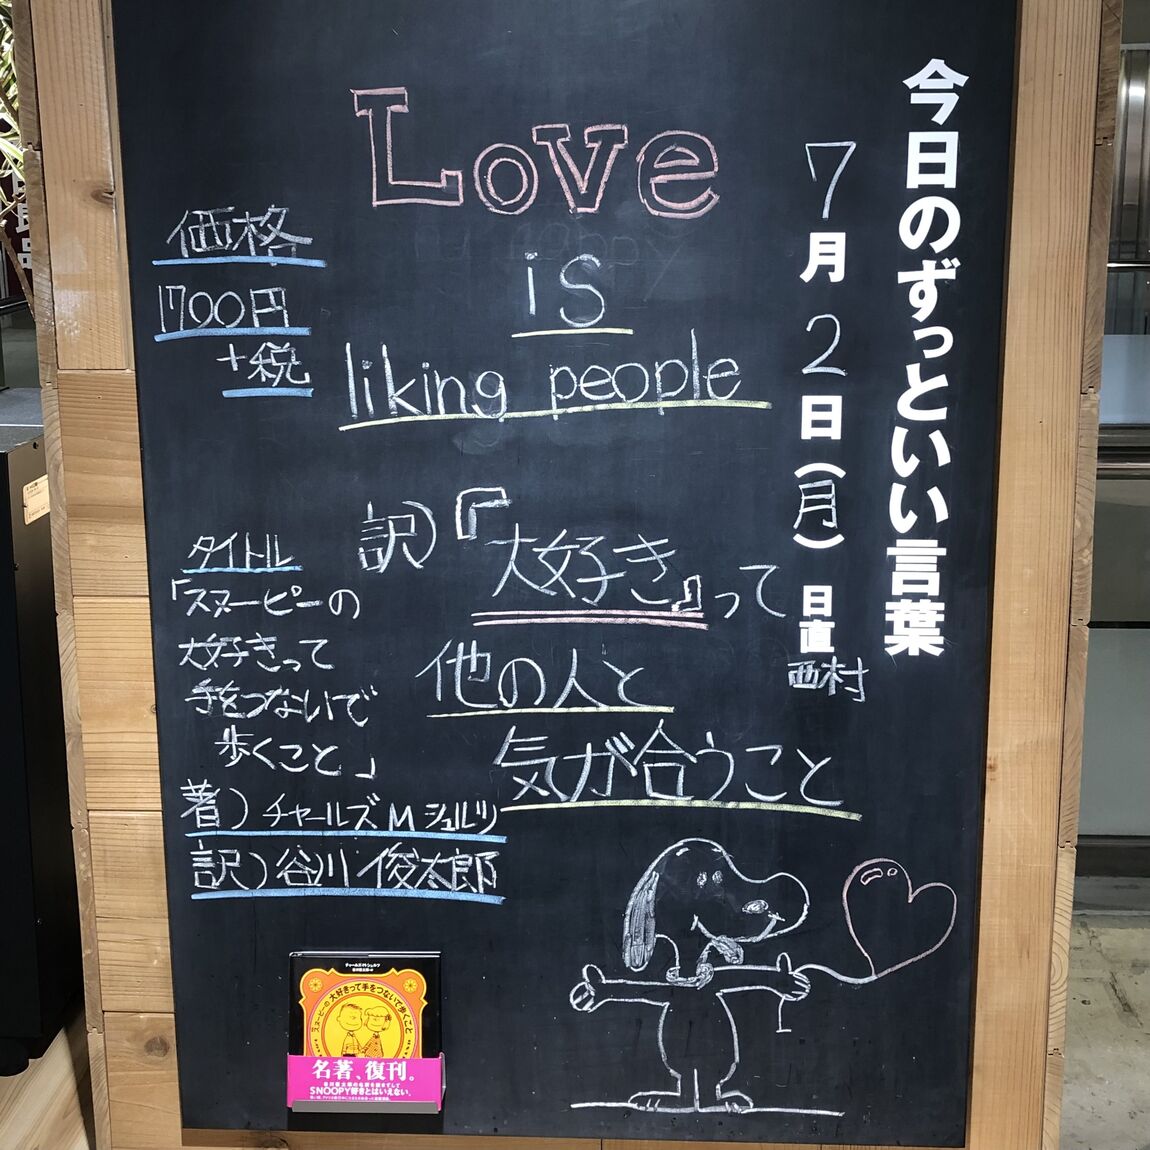 今日のずっといい言葉
7月2日(月) 日直 西村
Love
is
liking people
訳)『大好き』って
他の人と
気が合うこと
価格
1700円
+税
タイトル
「スヌーピーの
大好きって
手をつないで
歩くこと」
著) チャールズ M シュルツ
訳) 谷川 俊太郎
チャールズ・M・シュルツ
谷川俊太郎=訳
スヌーピーの大好きって手をつないで歩くこと
名著、復刊。
SNOOPY好きとはいえない。
良品